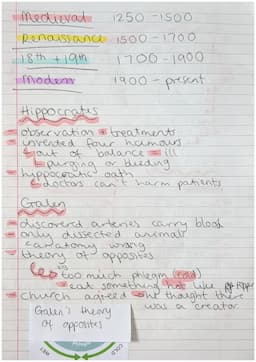 Medieval 1250-1500
Renaissance 1500-1700
18th + 19th 1700-1900
Modern 1900 - present
Hippocrates
observation + treatments
invented four humours
out of balance = ill
purging or bleeding
hippocratic oath
doctors can't harm patients
Galen
discovered arteries carry blood
only dissected animals
anatomy wrong
theory of opposites
too much phlegm (cold)
eat something hot like pepper
church agreed he thought there
was a creator
Galen's theory
of opposites